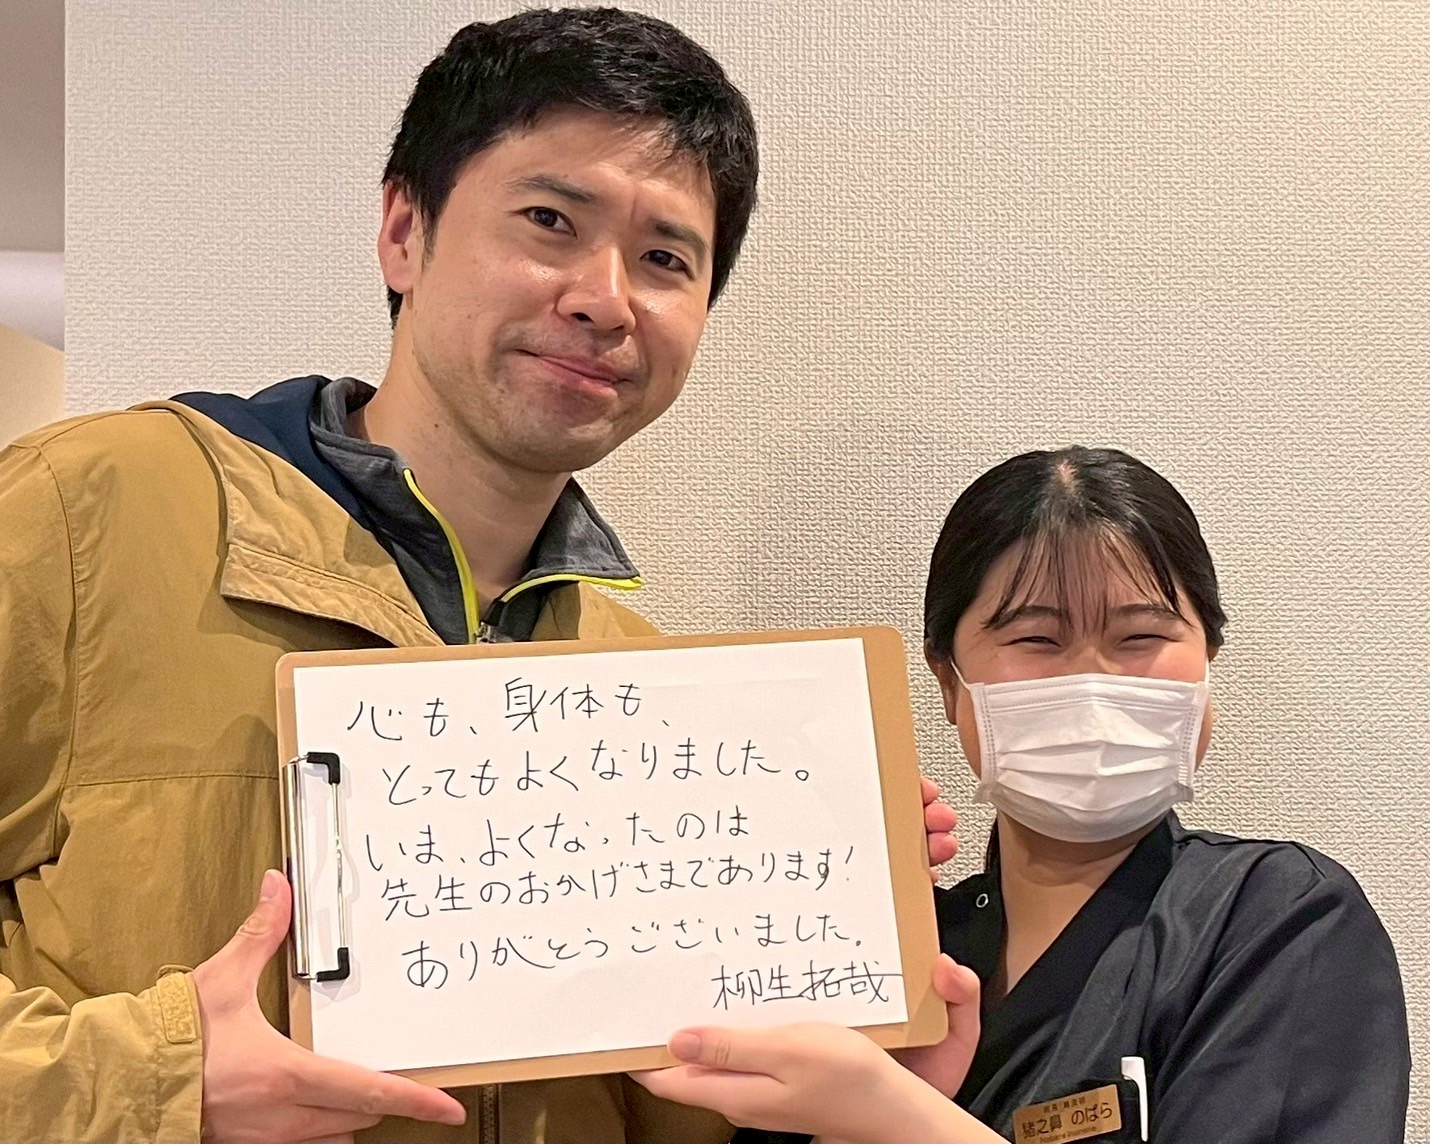 心も、身体も、
とってもよくなりました。
いま、よくなったのは
先生のおかげさまであります!
ありがとうございました。
柳生拓哉
猪之鼻 のばら